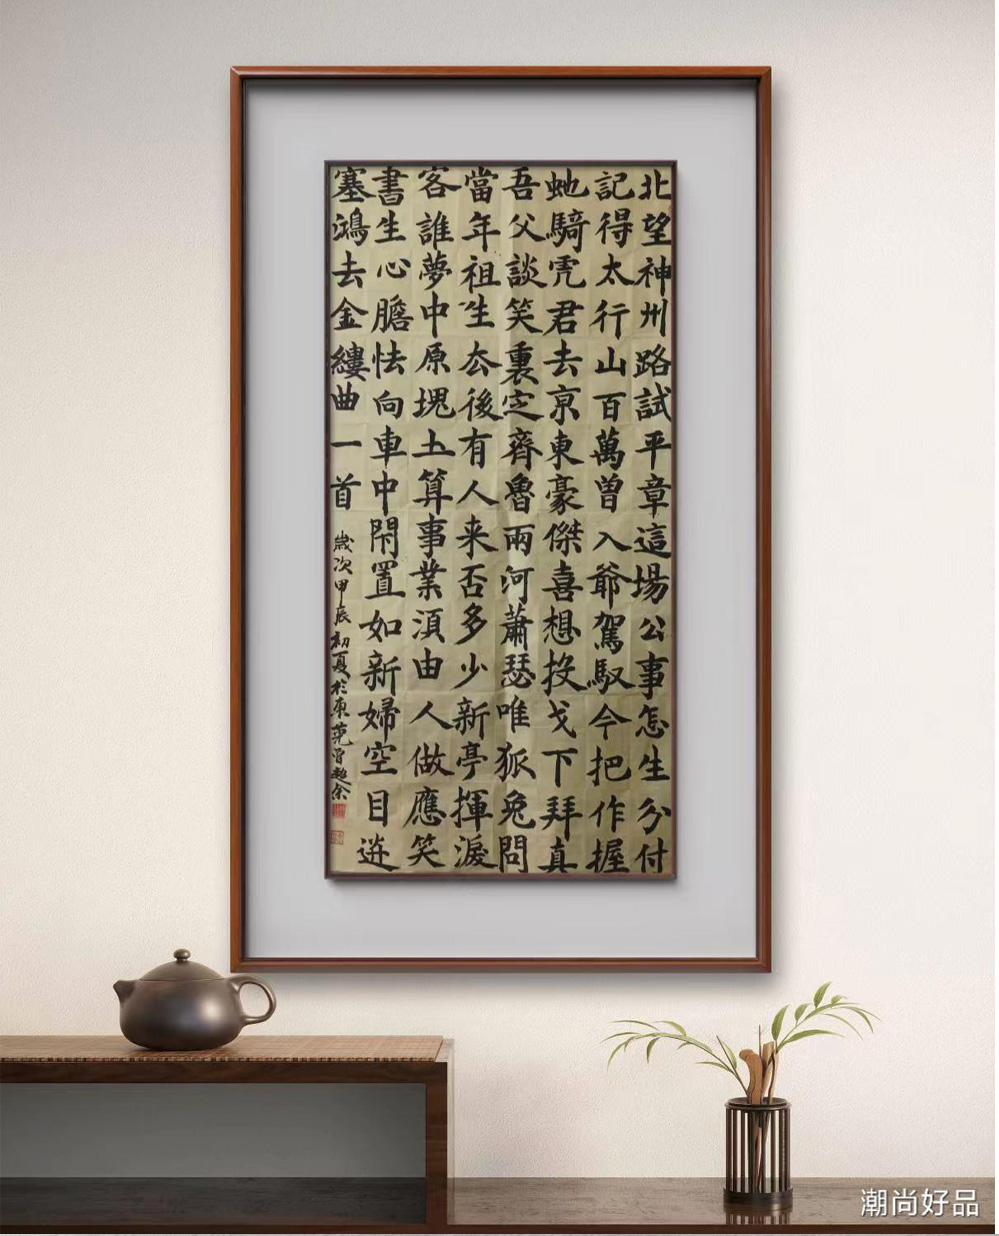 北望神州路試平章這場公事怎生分付
記得太行山百萬曾入爺駕馭今把作握
虵騎虎君去京東豪傑喜想投戈下拜真
吾父談笑裏定齊魯兩河蕭瑟唯狐兔問
當年祖生去後有人来否多少新亭揮淚
客誰夢中原塊土算事業湏由人做應笑
書生心膽怯向車中閇置如新婦空目送
塞鴻去金縷曲一首
歲次甲辰初夏於東莞曾
潮尚好品